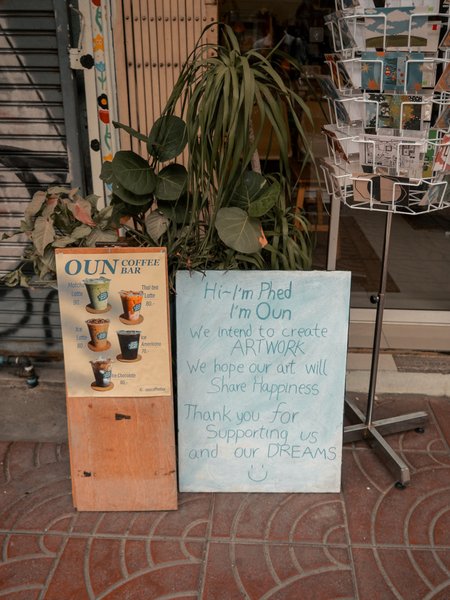 OUN COFFEE
BAR
Matcha
Latte
80.-
Thai tea
Latte
Ice
Latte
Ice
Americano
70.-
Ice Chocolate
80.-
Hi~I'm Phed
I'm Oun
We intend to create
ARTWORK
We hope our art will
Share Happiness
Thank you for
Supporting us
and our DREAMS